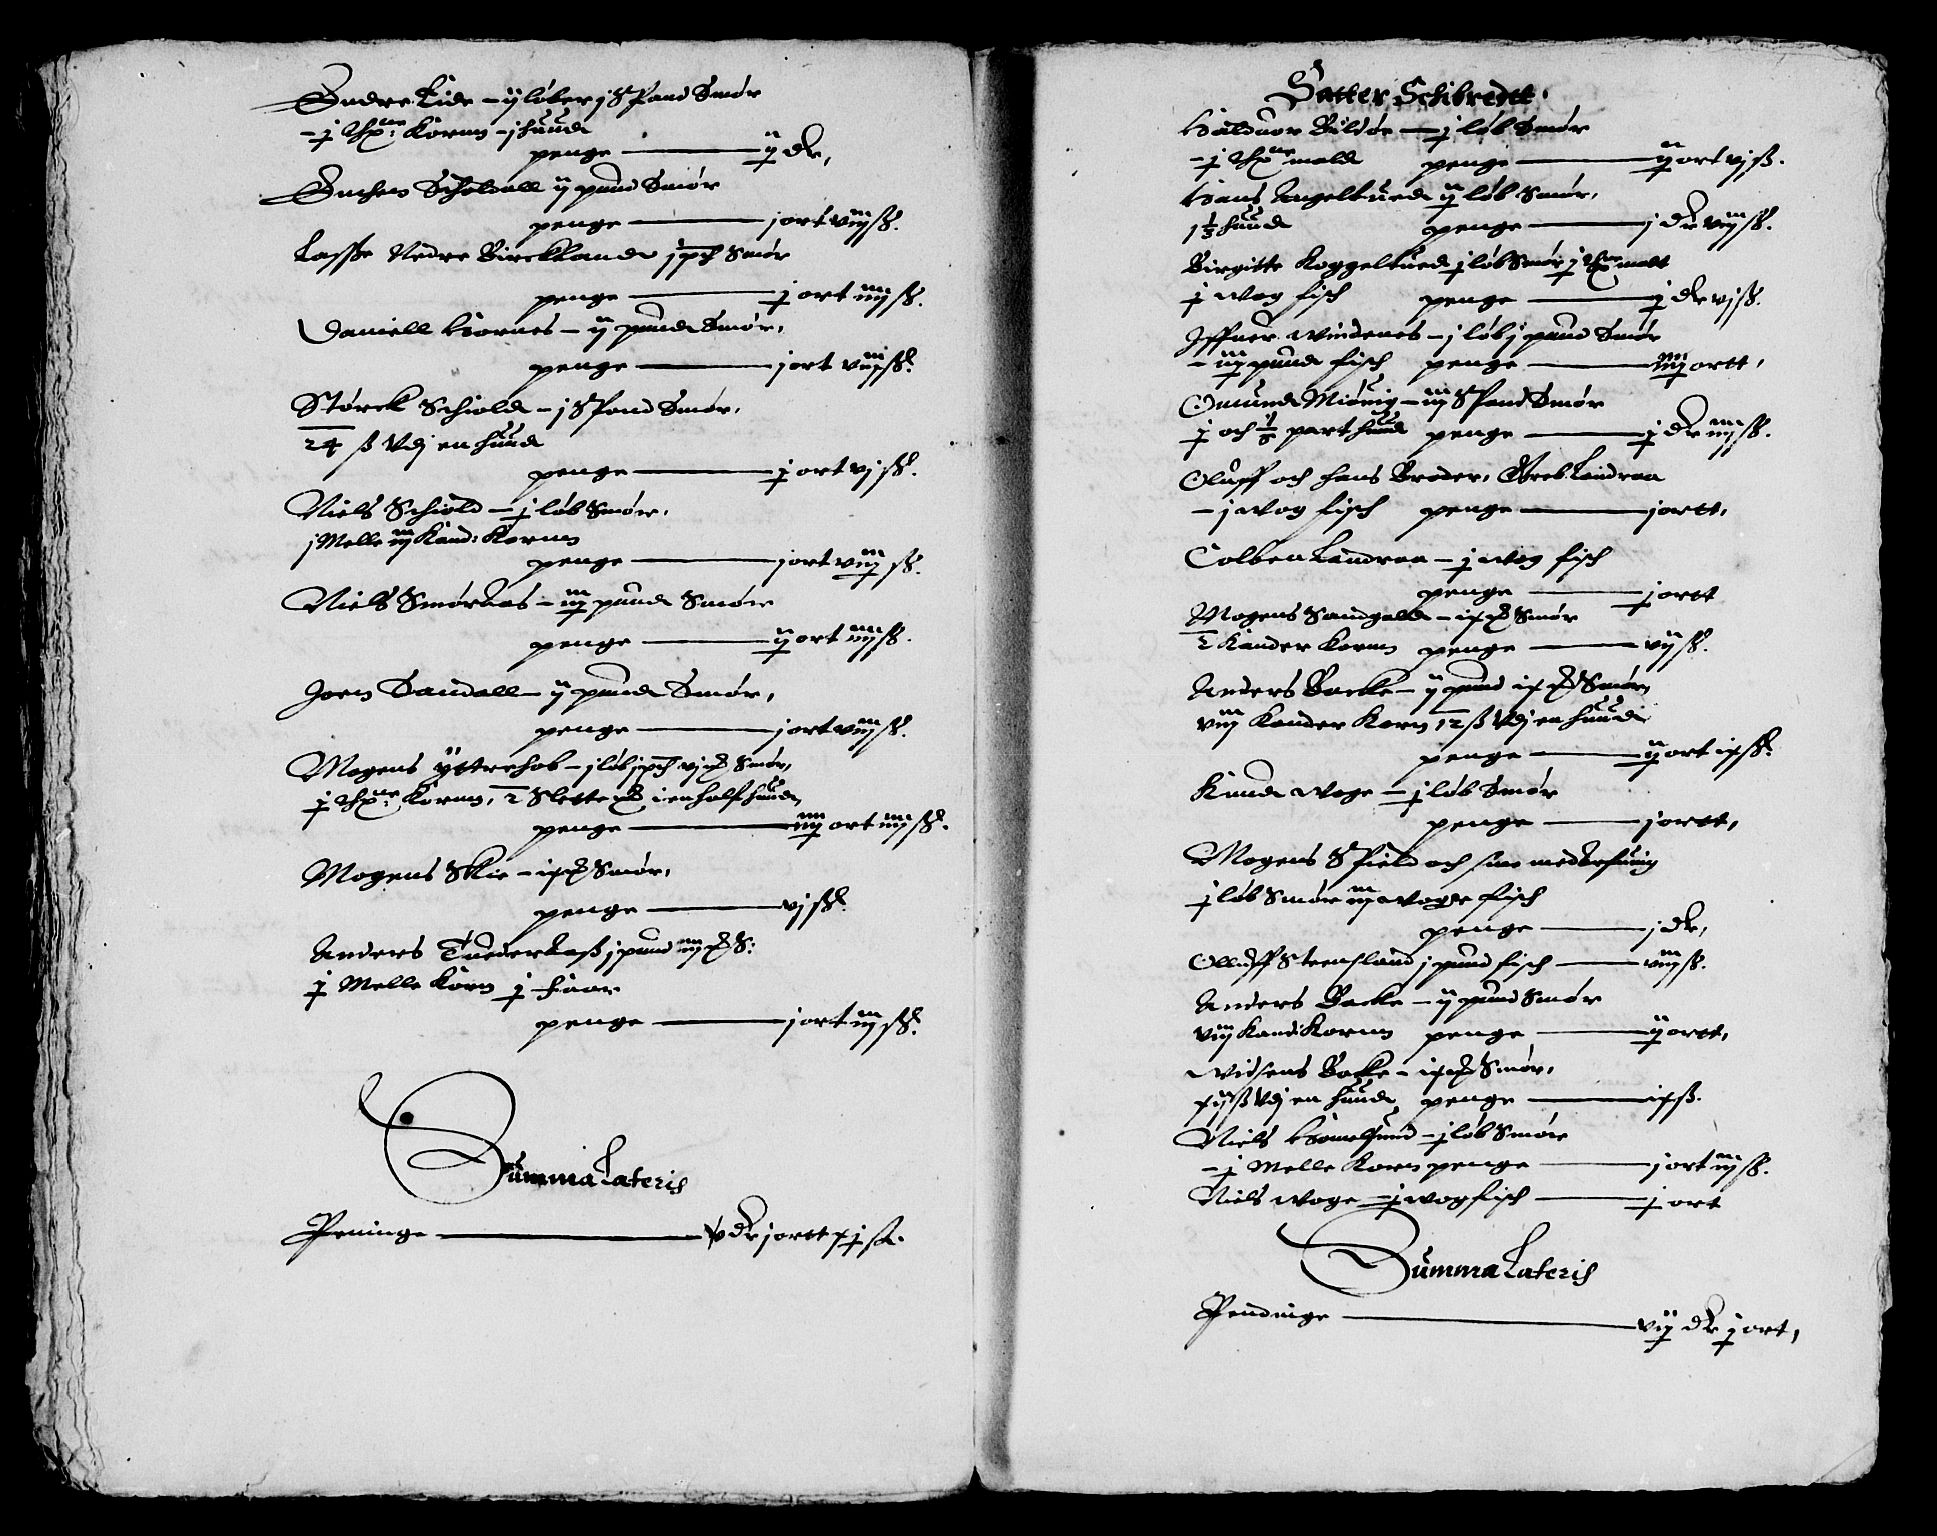 Endre Lide – ij løber j Spand Smør
– j thne: Korn – j huud
penge ij dlr,
Enchen Scholdall ij pund Smør
penge j ort viij ß.
Lasse Nedre Birckland j pd Smør
penge j ort iiij ß.
Daniell Hornes – ij pund Smør,
penge j ort viij ß.
Størck Schiold – j Spand Smør,
24 ß Vdj en huud
penge j ort vj ß.
Niels Schiold – j løb Smør,
j Melle iij Kand: Korn
penge j ort viij ß.
Niels Smøraas – iij pund Smør
penge ij ort iiij ß.
Joen Sandall – ij pund Smør,
penge j ort viij ß.
Mogens Yttrehob – j løb j pd vj Smør,
j thne: Korn, 2 Slette i en half huud
penge iiij ort iiij ß.
Mogens Skie – ix Smør,
penge vj ß.
Anders j pund iiij S:
j Melle Korn j faar
penge j ort iij ß.
Summa Lateris
Peninge v dlr j ortt xj ß.
Satter Schibredtt.
Halduor Bildøe – j løb Smør
– j thne malt penge ij ort vj ß.
Hans Angeltued ij løb Smør,
1⅓ huud penge j dlr viij ß.
Birgitte Koggeltued j løb Smør j thne malt
j wog fisch penge j dlr vj ß.
Iffuer Windenes – j løb j pund Smør
– iij pund fisch penge iiij ortt,
Omund Miouig – iij Spand Smør
j och part huud penge j dlr iiij ß.
Oluff och hans Broder, Landraa
– j wog fisch penge j ortt,
Colben Landraa – j wog fisch
penge j ortt
Mogens Sangolt – ix Smør
Kander Korn penge vij ß.
Anders Backe – ij pund ix Smør,
viij Kander Korn 12 ß Vdj en huud
penge ij ort ix ß.
Knud Woge – j løb Smør
penge j ortt,
Mogens Spield och sine medarfuing
j løb Smør iij woger fisch
penge j dlr,
Olluff Steensland j pund fisch viij ß.
Anders Backe – ij pund Smør
viij Kand: Korn penge ij ortt,
Widsens Backe – ix Smør,
xij ß Vdj en huud penge ix ß.
Niels Hamelsund – j løb Smør
– j Melle Korn penge j ort iij ß.
Niels Woge – j wog fisch j ort
Summa Lateris
Pendinge vij dlr j ort,